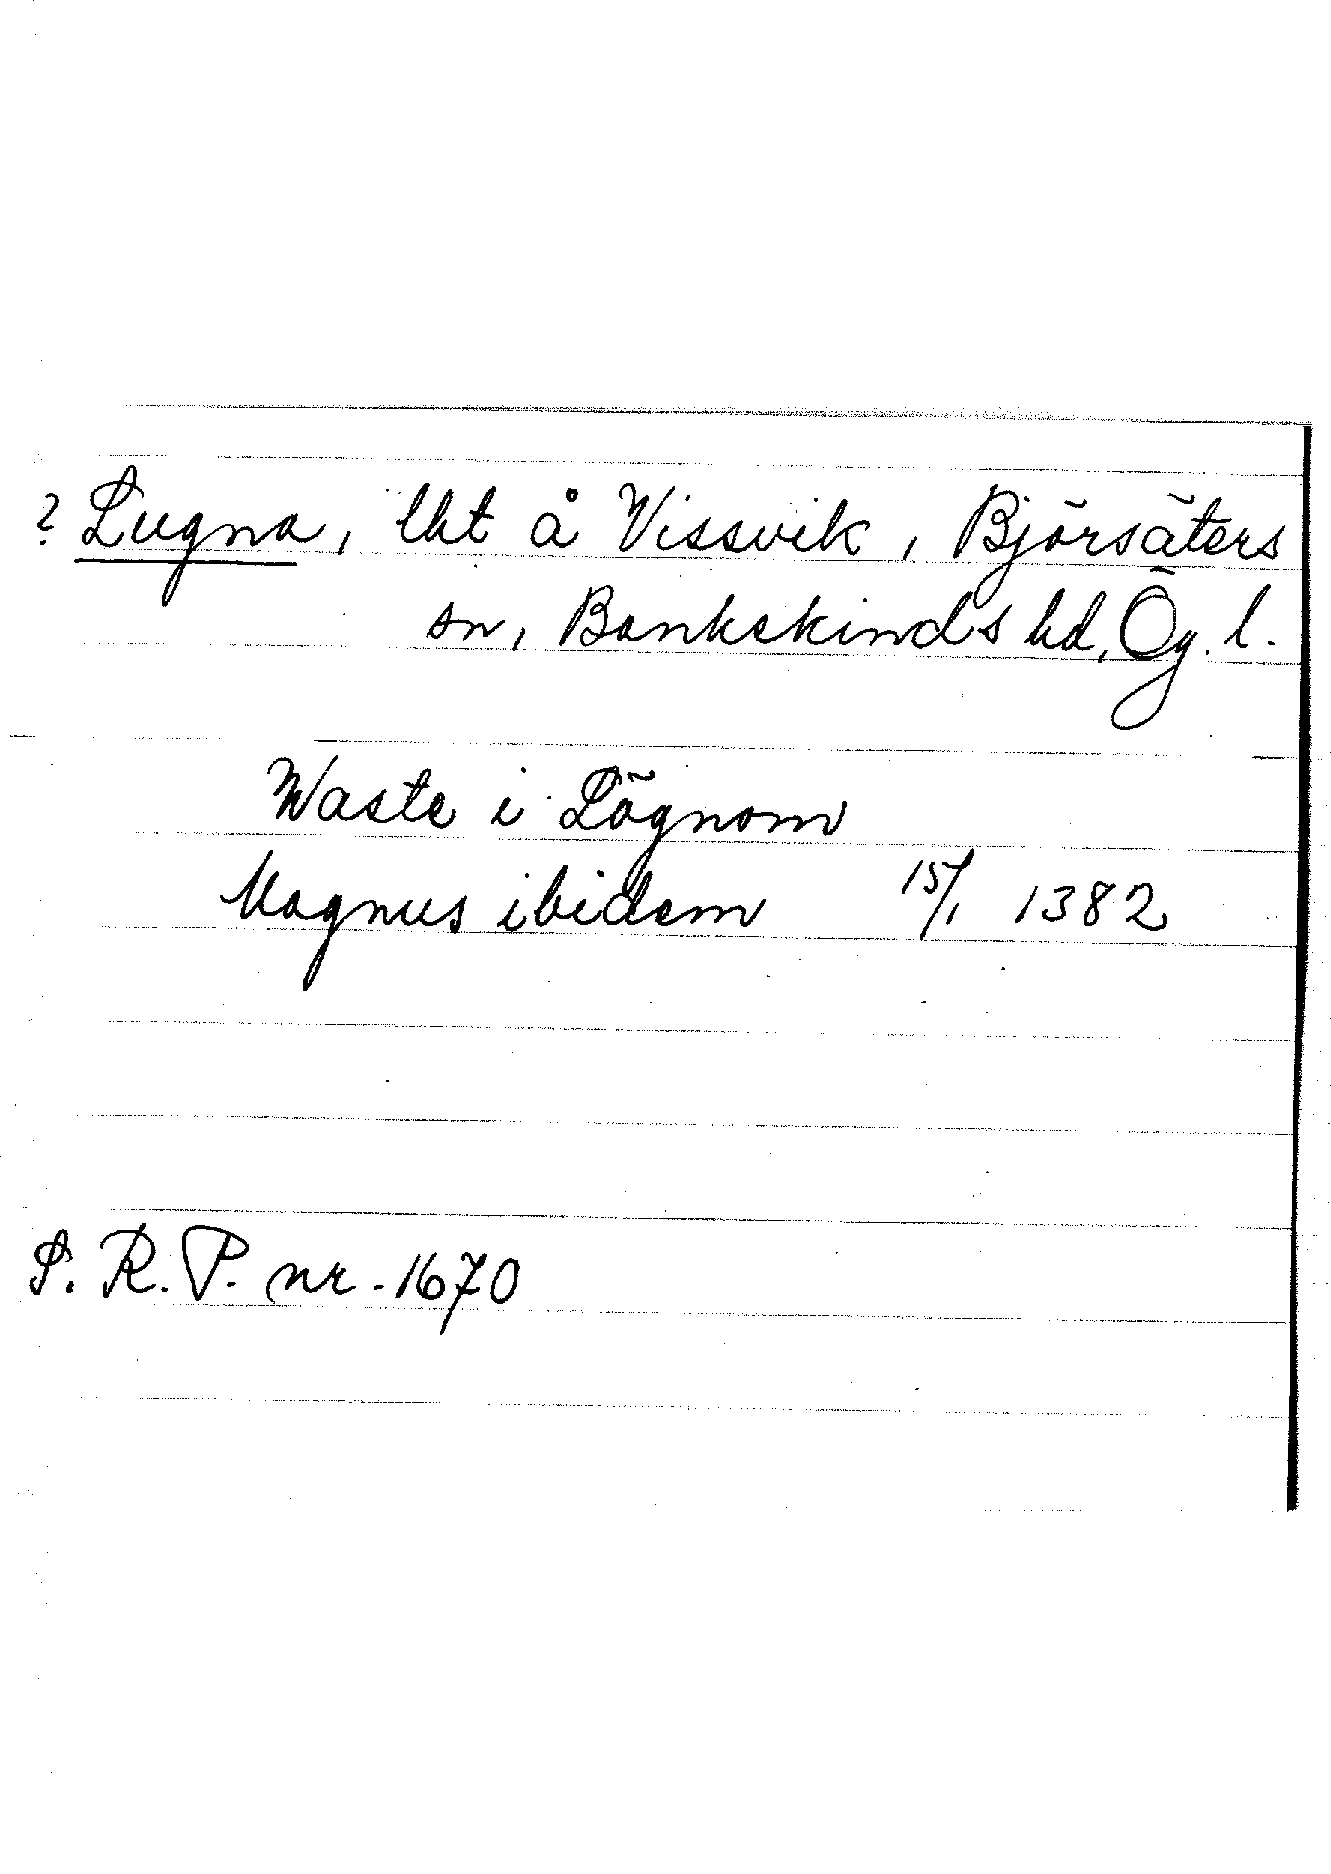 ? Lugna, lht å Vissvik, Björsäters
sn, Bankekinds hd, Ög. l.
Waste i Lögnom
Magnus ibidem 15/1 1382
S. R. P. nr. 1670